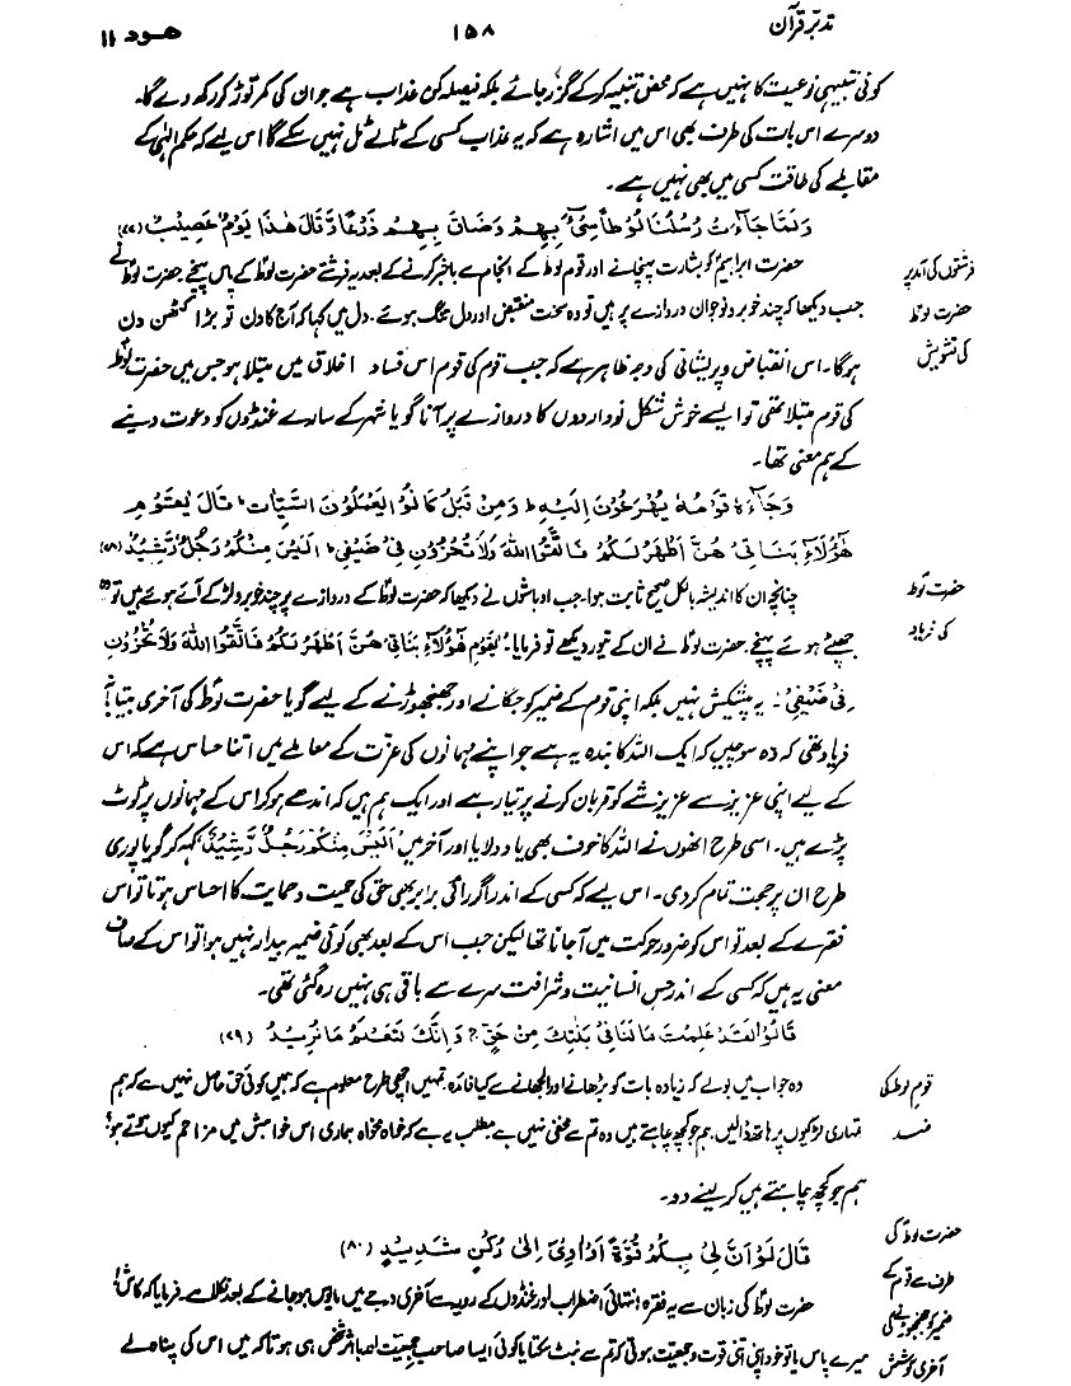 تدبّرِ قرآن ۱۵۸ ھود ۱۱
کوئی تنبیہی نوعیت کا نہیں ہے کہ محض تنبیہ کر کے گزر جائے بلکہ فیصلہ کن عذاب ہے جو ان کی کمر توڑ کر رکھ دے گا۔
دوسرے اس بات کی طرف بھی اس میں اشارہ ہے کہ یہ عذاب کسی کے ٹالے ٹل نہیں سکے گا اس لیے کہ حکم الٰہی کے
مقابلے کی طاقت کسی میں بھی نہیں ہے۔
وَلَمَّا جَآءَتْ رُسُلُنَا لُوْطًا سِیْٓءَ بِھِمْ وَضَاقَ بِھِمْ ذَرْعًا وَّقَالَ ھٰذَا یَوْمٌ عَصِیْبٌ (۷۷)
فرشتوں کی آمد پر
حضرت لوطؑ
کی تشویش
حضرت ابراہیمؑ کو بشارت پہنچانے اور قوم لوط کے انجام سے باخبر کرنے کے بعد یہ فرشتے حضرت لوطؑ کے پاس پہنچے۔ حضرت لوطؑ نے
جب دیکھا کہ چند خوبرو نوجوان دروازے پر ہیں تو وہ سخت منقبض اور دل تنگ ہوئے۔ دل میں کہا کہ آج کا دن تو بڑا کٹھن دن
ہوگا۔ اس انقباض و پریشانی کی وجہ ظاہر ہے کہ جب قوم کی قوم اس فساد اخلاق میں مبتلا ہو جس میں حضرت لوطؑ
کی قوم مبتلا تھی تو ایسے خوش شکل نوواردوں کا دروازے پر آنا گویا شہر کے سارے غنڈوں کو دعوت دینے
کے ہم معنی تھا۔
وَجَآءَہٗ قَوْمُہٗ یُھْرَعُوْنَ اِلَیْہِ ؕ وَمِنْ قَبْلُ کَانُوْا یَعْمَلُوْنَ السَّیِّاٰتِ ؕ قَالَ یٰقَوْمِ
ھٰٓؤُلَآءِ بَنَاتِیْ ھُنَّ اَطْھَرُ لَکُمْ فَاتَّقُوا اللّٰہَ وَلَا تُخْزُوْنِ فِیْ ضَیْفِیْ ؕ اَلَیْسَ مِنْکُمْ رَجُلٌ رَّشِیْدٌ (۷۸)
حضرت لوطؑ
کی فریاد
چنانچہ ان کا اندیشہ بالکل صحیح ثابت ہوا۔ جب اوباشوں نے دیکھا کہ حضرت لوطؑ کے دروازے پر چند خوبرو لڑکے آئے ہوئے ہیں تو وہ
جھپٹے ہوئے پہنچے۔ حضرت لوطؑ نے ان کے تیور دیکھے تو فرمایا۔ یٰقَوْمِ ھٰٓؤُلَآءِ بَنَاتِیْ ھُنَّ اَطْھَرُ لَکُمْ فَاتَّقُوا اللّٰہَ وَلَا تُخْزُوْنِ
فِیْ ضَیْفِیْ؛ یہ پیشکش نہیں بلکہ اپنی قوم کے ضمیر کو جگانے اور جھنجھوڑنے کے لیے گویا حضرت لوطؑ کی آخری بیتابانہ
فریاد تھی کہ وہ سوچیں کہ ایک اللہ کا بندہ یہ ہے جو اپنے مہمانوں کی عزت کے معاملے میں اتنا حساس ہے کہ اس
کے لیے اپنی عزیز سے عزیز شے کو قربان کرنے پر تیار ہے اور ایک ہم ہیں کہ اندھے ہو کر اس کے مہمانوں پر ٹوٹ
پڑے ہیں۔ اسی طرح انھوں نے اللہ کا خوف بھی یاد دلایا اور آخر میں اَلَیْسَ مِنْکُمْ رَجُلٌ رَّشِیْدٌ کہہ کر گویا پوری
طرح ان پر حجت تمام کر دی۔ اس لیے کہ کسی کے اندر اگر رائی برابر بھی حق کی حمیت و حمایت کا احساس ہوتا تو اس
فقرے کے بعد تو اس کو ضرور حرکت میں آ جانا تھا لیکن جب اس کے بعد بھی کوئی ضمیر بیدار نہیں ہوا تو اس کے صاف
معنی یہ ہیں کہ کسی کے اندر حسِ انسانیت و شرافت سرے سے باقی ہی نہیں رہ گئی تھی۔
قَالُوْا لَقَدْ عَلِمْتَ مَا لَنَا فِیْ بَنٰتِکَ مِنْ حَقٍّ ۚ وَاِنَّکَ لَتَعْلَمُ مَا نُرِیْدُ (۷۹)
قوم لوط کی
ضد
وہ جواب میں بولے کہ زیادہ بات کو بڑھانے اور الجھانے سے کیا فائدہ۔ تمہیں اچھی طرح معلوم ہے کہ ہمیں کوئی حق حاصل نہیں ہے کہ ہم
تمہاری لڑکیوں پر ہاتھ ڈالیں۔ ہم جو کچھ چاہتے ہیں وہ تم سے مخفی نہیں ہے۔ مطلب یہ ہے کہ خواہ مخواہ ہماری اس خواہش میں مزاحم کیوں ہوتے ہو؟
ہم جو کچھ چاہتے ہیں کر لینے دو۔
قَالَ لَوْ اَنَّ لِیْ بِکُمْ قُوَّۃً اَوْ اٰوِیْٓ اِلٰی رُکْنٍ شَدِیْدٍ (۸۰)
حضرت لوطؑ کی
طرف سے قوم کے
ضمیر کو جھنجھوڑنے کی
آخری کوشش
حضرت لوطؑ کی زبان سے یہ فقرہ انتہائی اضطراب اور غنڈوں کے رویہ سے آخری درجے میں مایوس ہو جانے کے بعد نکلا ہے۔ فرمایا کہ کاش!
میرے پاس یا تو خود اپنی اتنی قوت و جمعیت ہوتی کہ تم سے نبٹ سکتا یا کوئی ایسا صاحب جمعیت اور بااثر شخص ہی ہوتا کہ میں اس کی پناہ لے